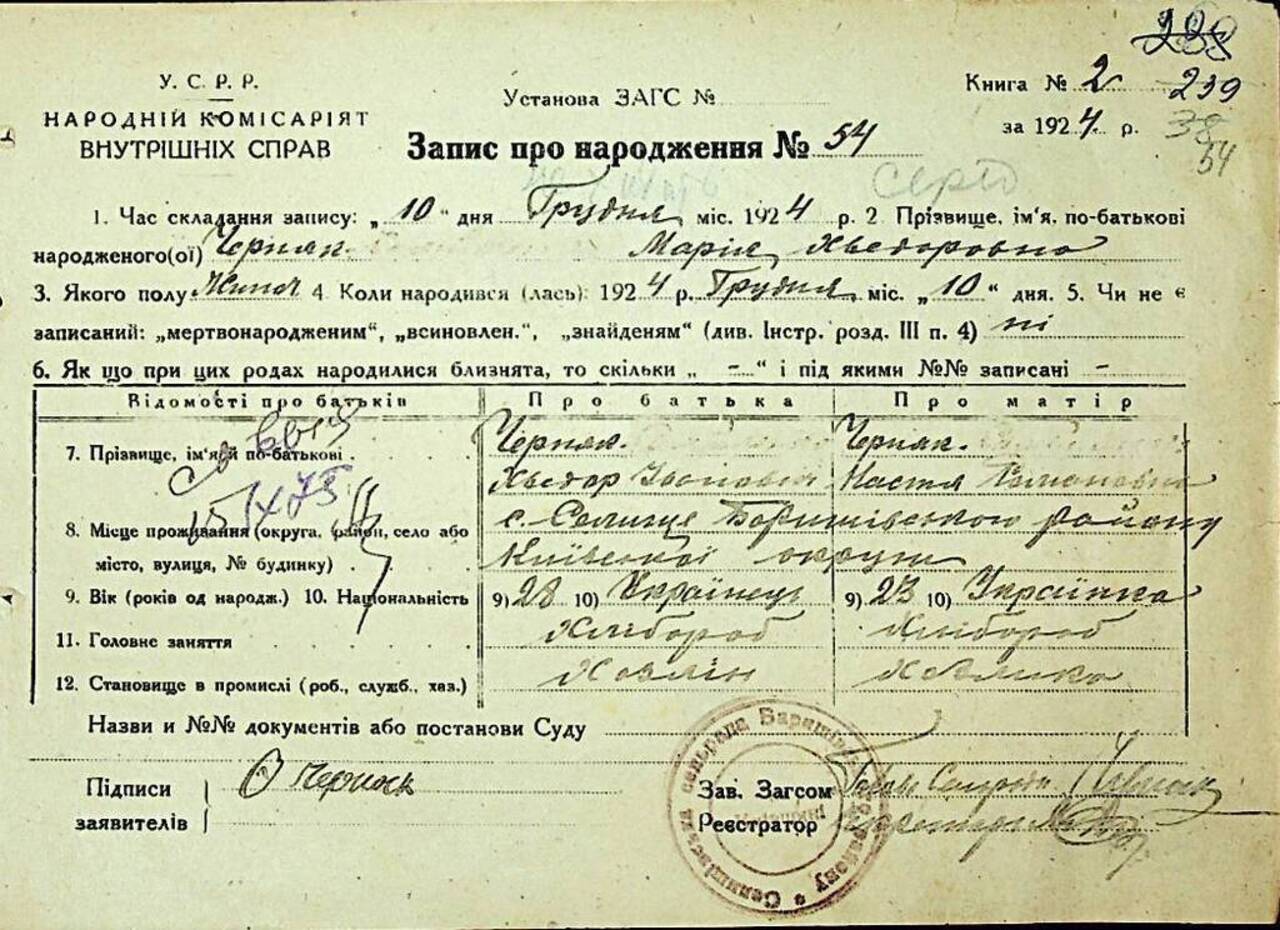 235
239
38
54
У. С. Р. Р.
НАРОДНІЙ КОМІСАРІЯТ
ВНУТРІШНІХ СПРАВ
Установа ЗАГС №
Книга № 2
за 1924 р.
Запис про народження № 54
1. Час складання запису: „10" дня Грудня міс. 1924 р. 2. Прізвище, ім'я, по-батькові
народженого(ої) Черняк Марія Хведоровна
3. Якого полу Жиноч 4. Коли народився (лась): 1924 р. Грудня міс. „10" дня. 5. Чи не є
записаний: „мертвонародженим", „всиновлен.", „знайденям" (див. Інстр. розд. III п. 4) ні
6. Як що при цих родах народилися близнята, то скільки „ - " і під якими №№ записані -
Відомості про батьків Про батька Про матір
7. Прізвище, ім'я й по-батькові Черняк. Черняк.
Хведор Іванович Настя Романовна
8. Місце проживання (округа, район, село або с. Селище Баришівського району
місто, вулиця, № будинку) Київської округи
9. Вік (років од народж.) 10. Національність 9) 28 10) Українець 9) 23 10) Українка
11. Головне заняття Хлібороб Хлібороб
12. Становище в промислі (роб., служб., хаз.) Хазяїн Хазяйка
Назви и №№ документів або постанови Суду
Підписи
заявителів
Черняк
Зав. Загсом Голова
Реєстратор